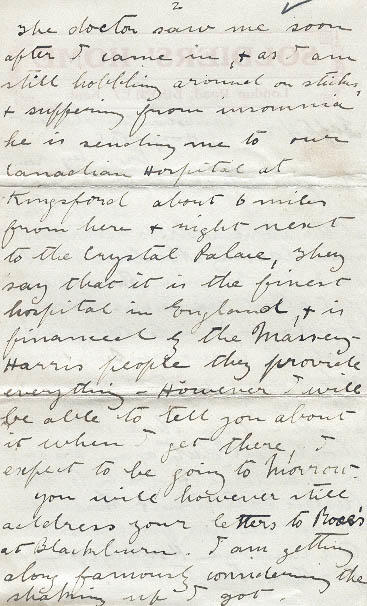 2
The doctor saw me soon
after I came in, & as I am
still hobbling around on sticks
& suffering from insomnia
he is sending me to our
Canadian Hospital at
Kingsford about 6 miles
from here & right next
to the Crystal Palace, They
say that it is the finest
hospital in England, & is
financed by the Massey-
Harris people they provide
everything - However I will
be able to tell you about
it when I get there, I
expect to be going to morrow.
You will however still
address your letters to
at Blackburn. I am getting
along famously considering the
shaking up I got.